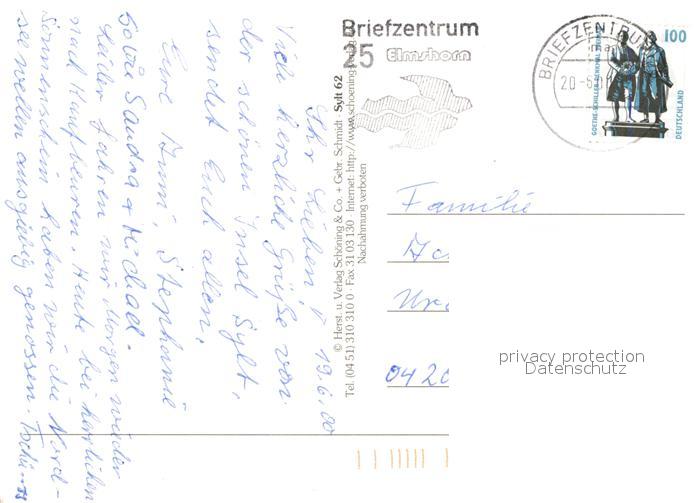 Ihr Lieben! 19.6.00
Viele herzliche Grüße von
der schönen Insel Sylt,
sendet Euch allen.
Eure Stephanie
sowie Sandra + Michael.
Leider fahren wir Morgen wieder
nach Kaufbeuren. Heute bei herrlichen
Sonnenschein haben wir die Nord-
see wellen ausgiebig genossen.
© Herst. u. Verlag Schöning & Co. + Gebr. Schmidt · Sylt 62
Tel. (04 51) 310 310 0 · Fax 31 03 130 · Internet: http://www.schoening-verlag
Nachahmung verboten
Briefzentrum
25 Elmshorn
BRIEFZENTRUM
20.-6.
100
GOETHE-SCHILLER-DENKMAL WEIMAR
DEUTSCHLAND
Familie
0420
privacy protection
Datenschutz